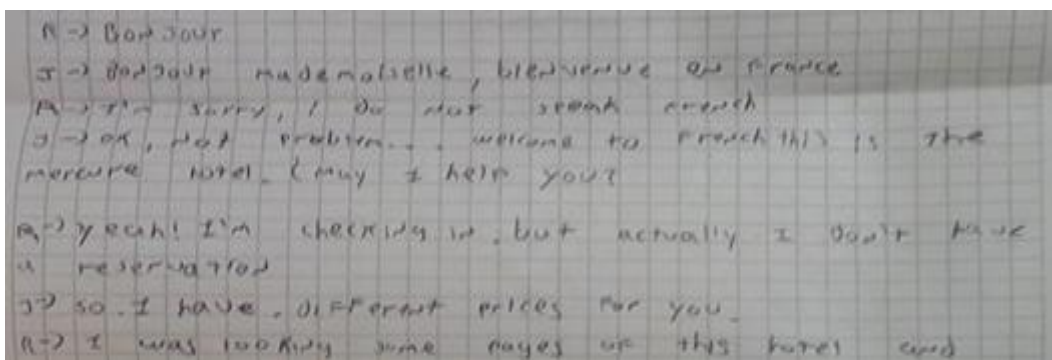 A-> Bonjour
J-> Bonjour mademoiselle, bienvenue en France
A-> I'm sorry, I do not speak french
J-> OK, not problem... welcome to french this is the
mercure hotel. (may I help you?
A-> yeah! I'm checking in, but actually I don't have
a reservation
J-> so. I have. different prices for you.
A-> I was looking some pages of this hotel and